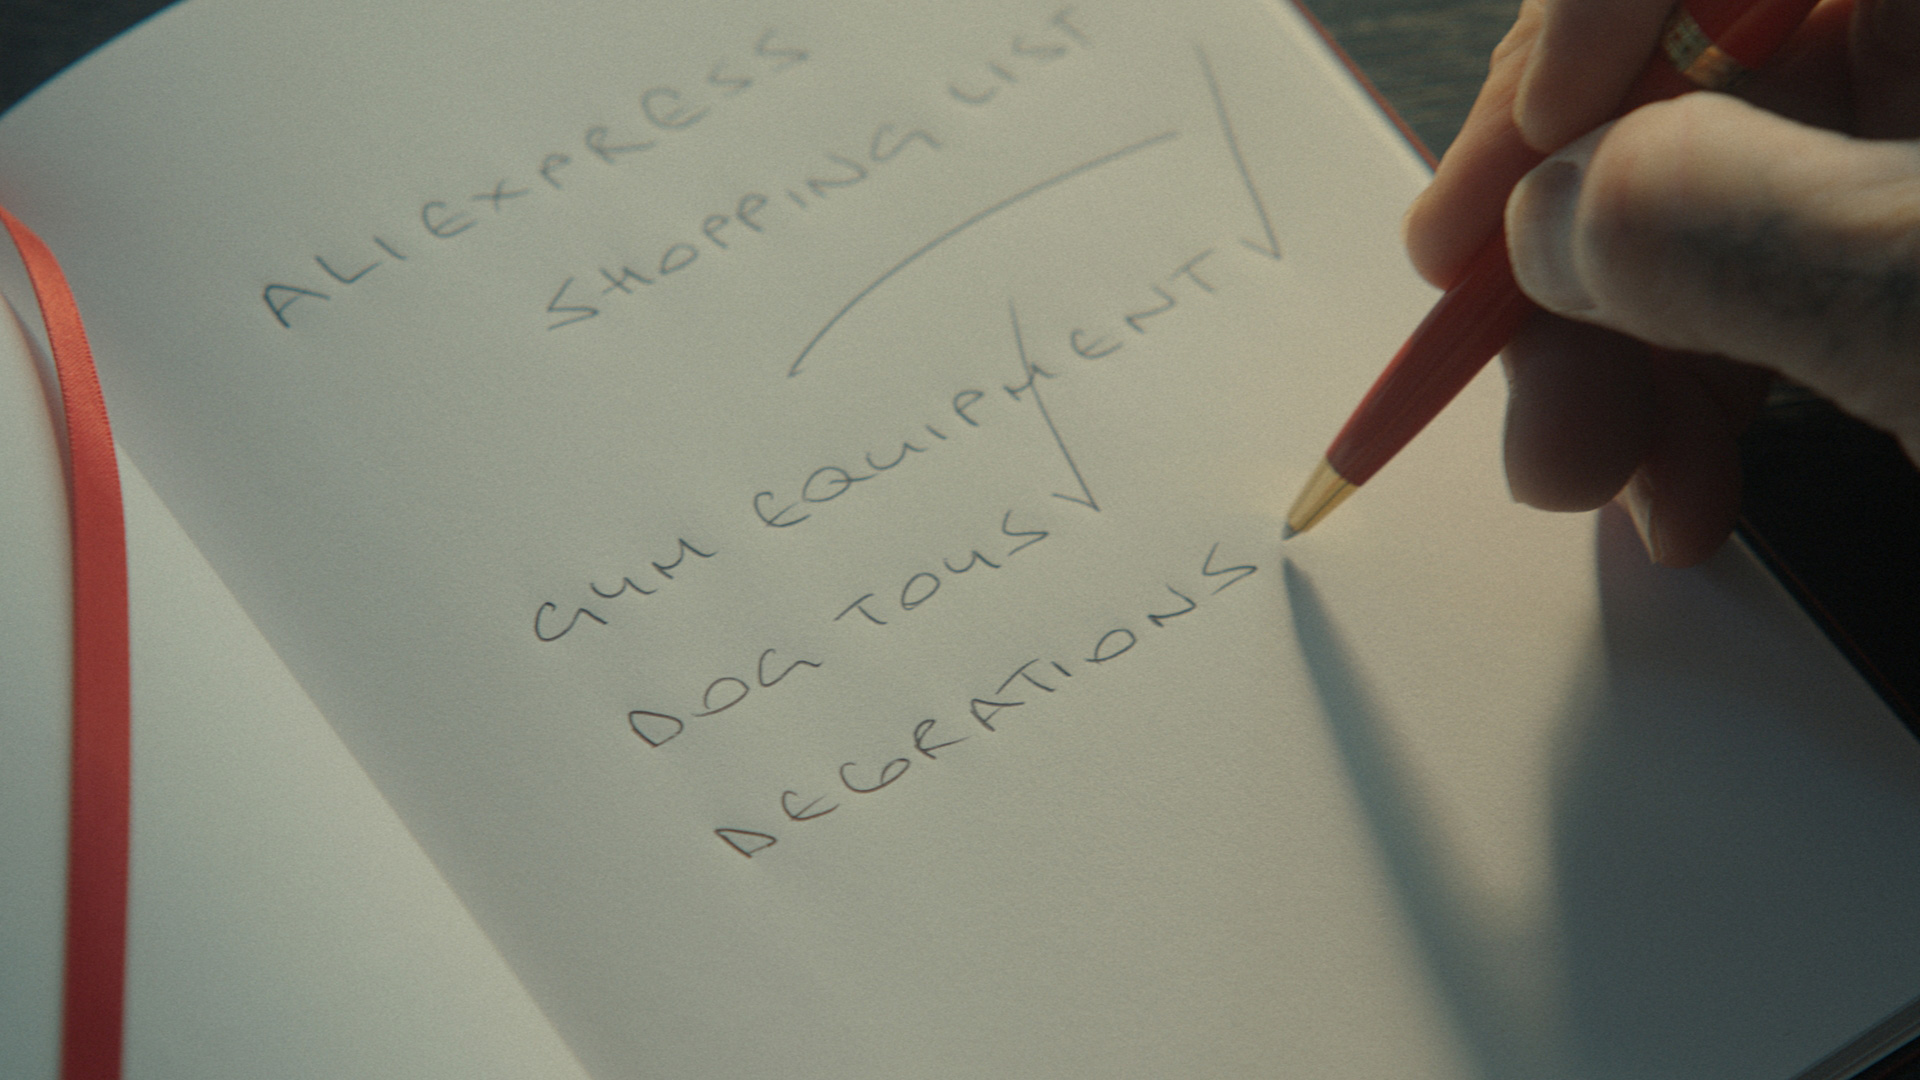 ALIEXPRESS
SHOPPING LIST
GYM EQUIPMENT ✓
DOG TOYS ✓
DECORATIONS